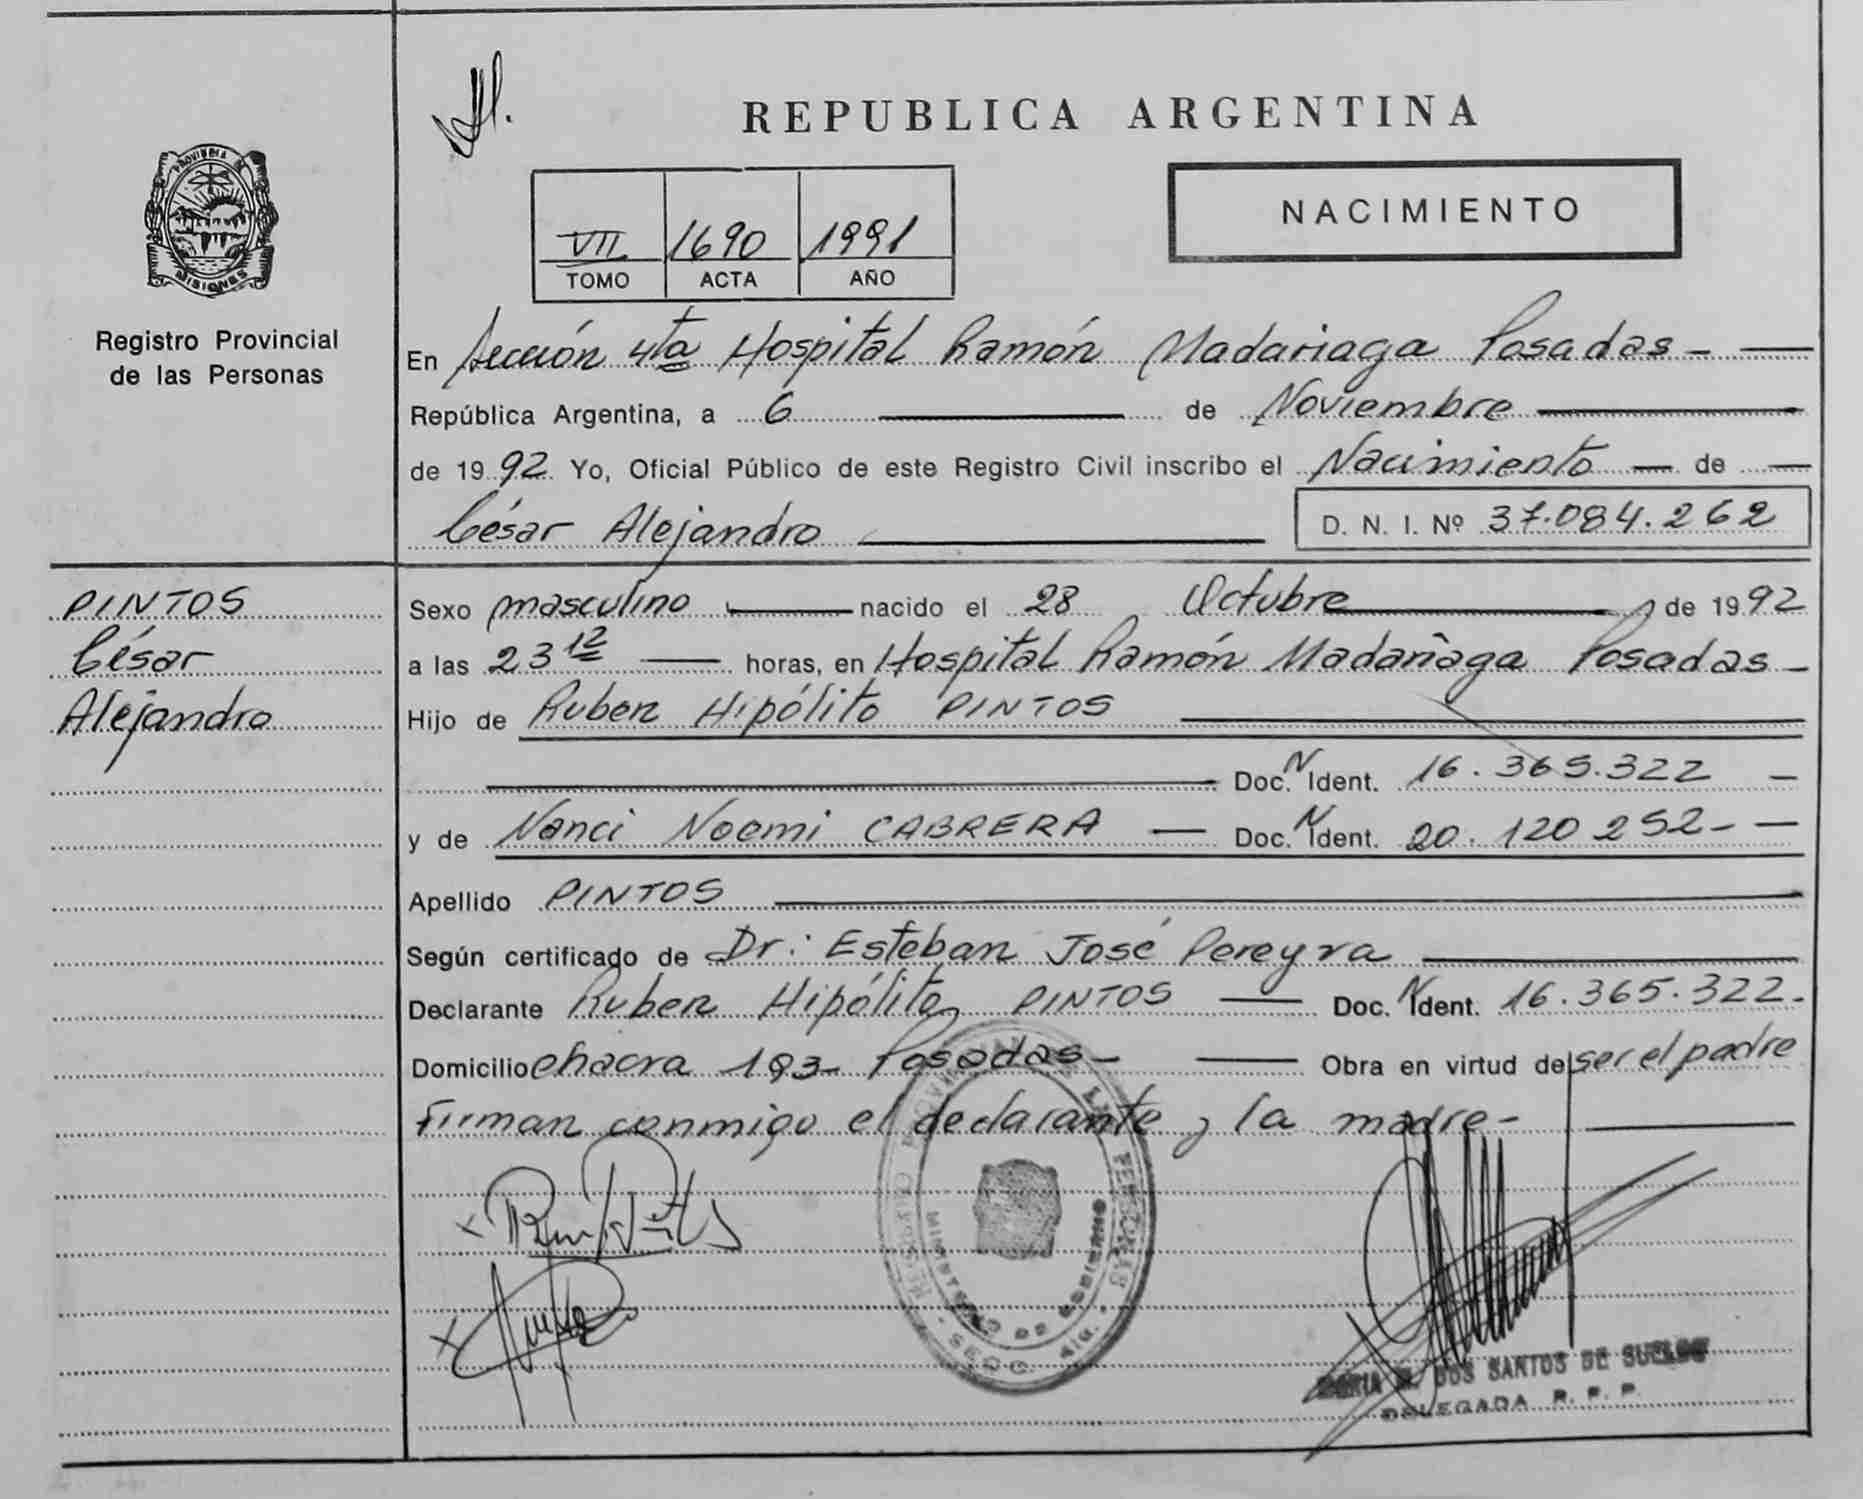 REPUBLICA ARGENTINA
PROVINCIA DE
MISIONES
Registro Provincial
de las Personas
NACIMIENTO
VII 1690 1991
TOMO ACTA AÑO
En Sección 4ta Hospital Ramón Madariaga Posadas -
República Argentina, a 6 de Noviembre
de 1992 Yo, Oficial Público de este Registro Civil inscribo el Nacimiento de
César Alejandro
D. N. I. Nº 37.084.262
PINTOS
César
Alejandro
Sexo masculino nacido el 28 Octubre de 1992
a las 23 12 horas, en Hospital Ramón Madariaga Posadas -
Hijo de Ruben Hipólito PINTOS
Doc. N Ident. 16.365.322
y de Nanci Noemi CABRERA Doc. N Ident. 20.120 252 -
Apellido PINTOS
Según certificado de Dr: Esteban José Pereyra
Declarante Ruben Hipólito PINTOS Doc. N Ident. 16.365.322.
Domicilio chacra 193 - Posadas - Obra en virtud de ser el padre
Firman conmigo el declarante y la madre -
REGISTRO PROVINCIAL DE LAS PERSONAS
MINISTERIO DE GOBIERNO
SECC. 4ta.
DOS SANTOS DE
DELEGADA R. P. P.